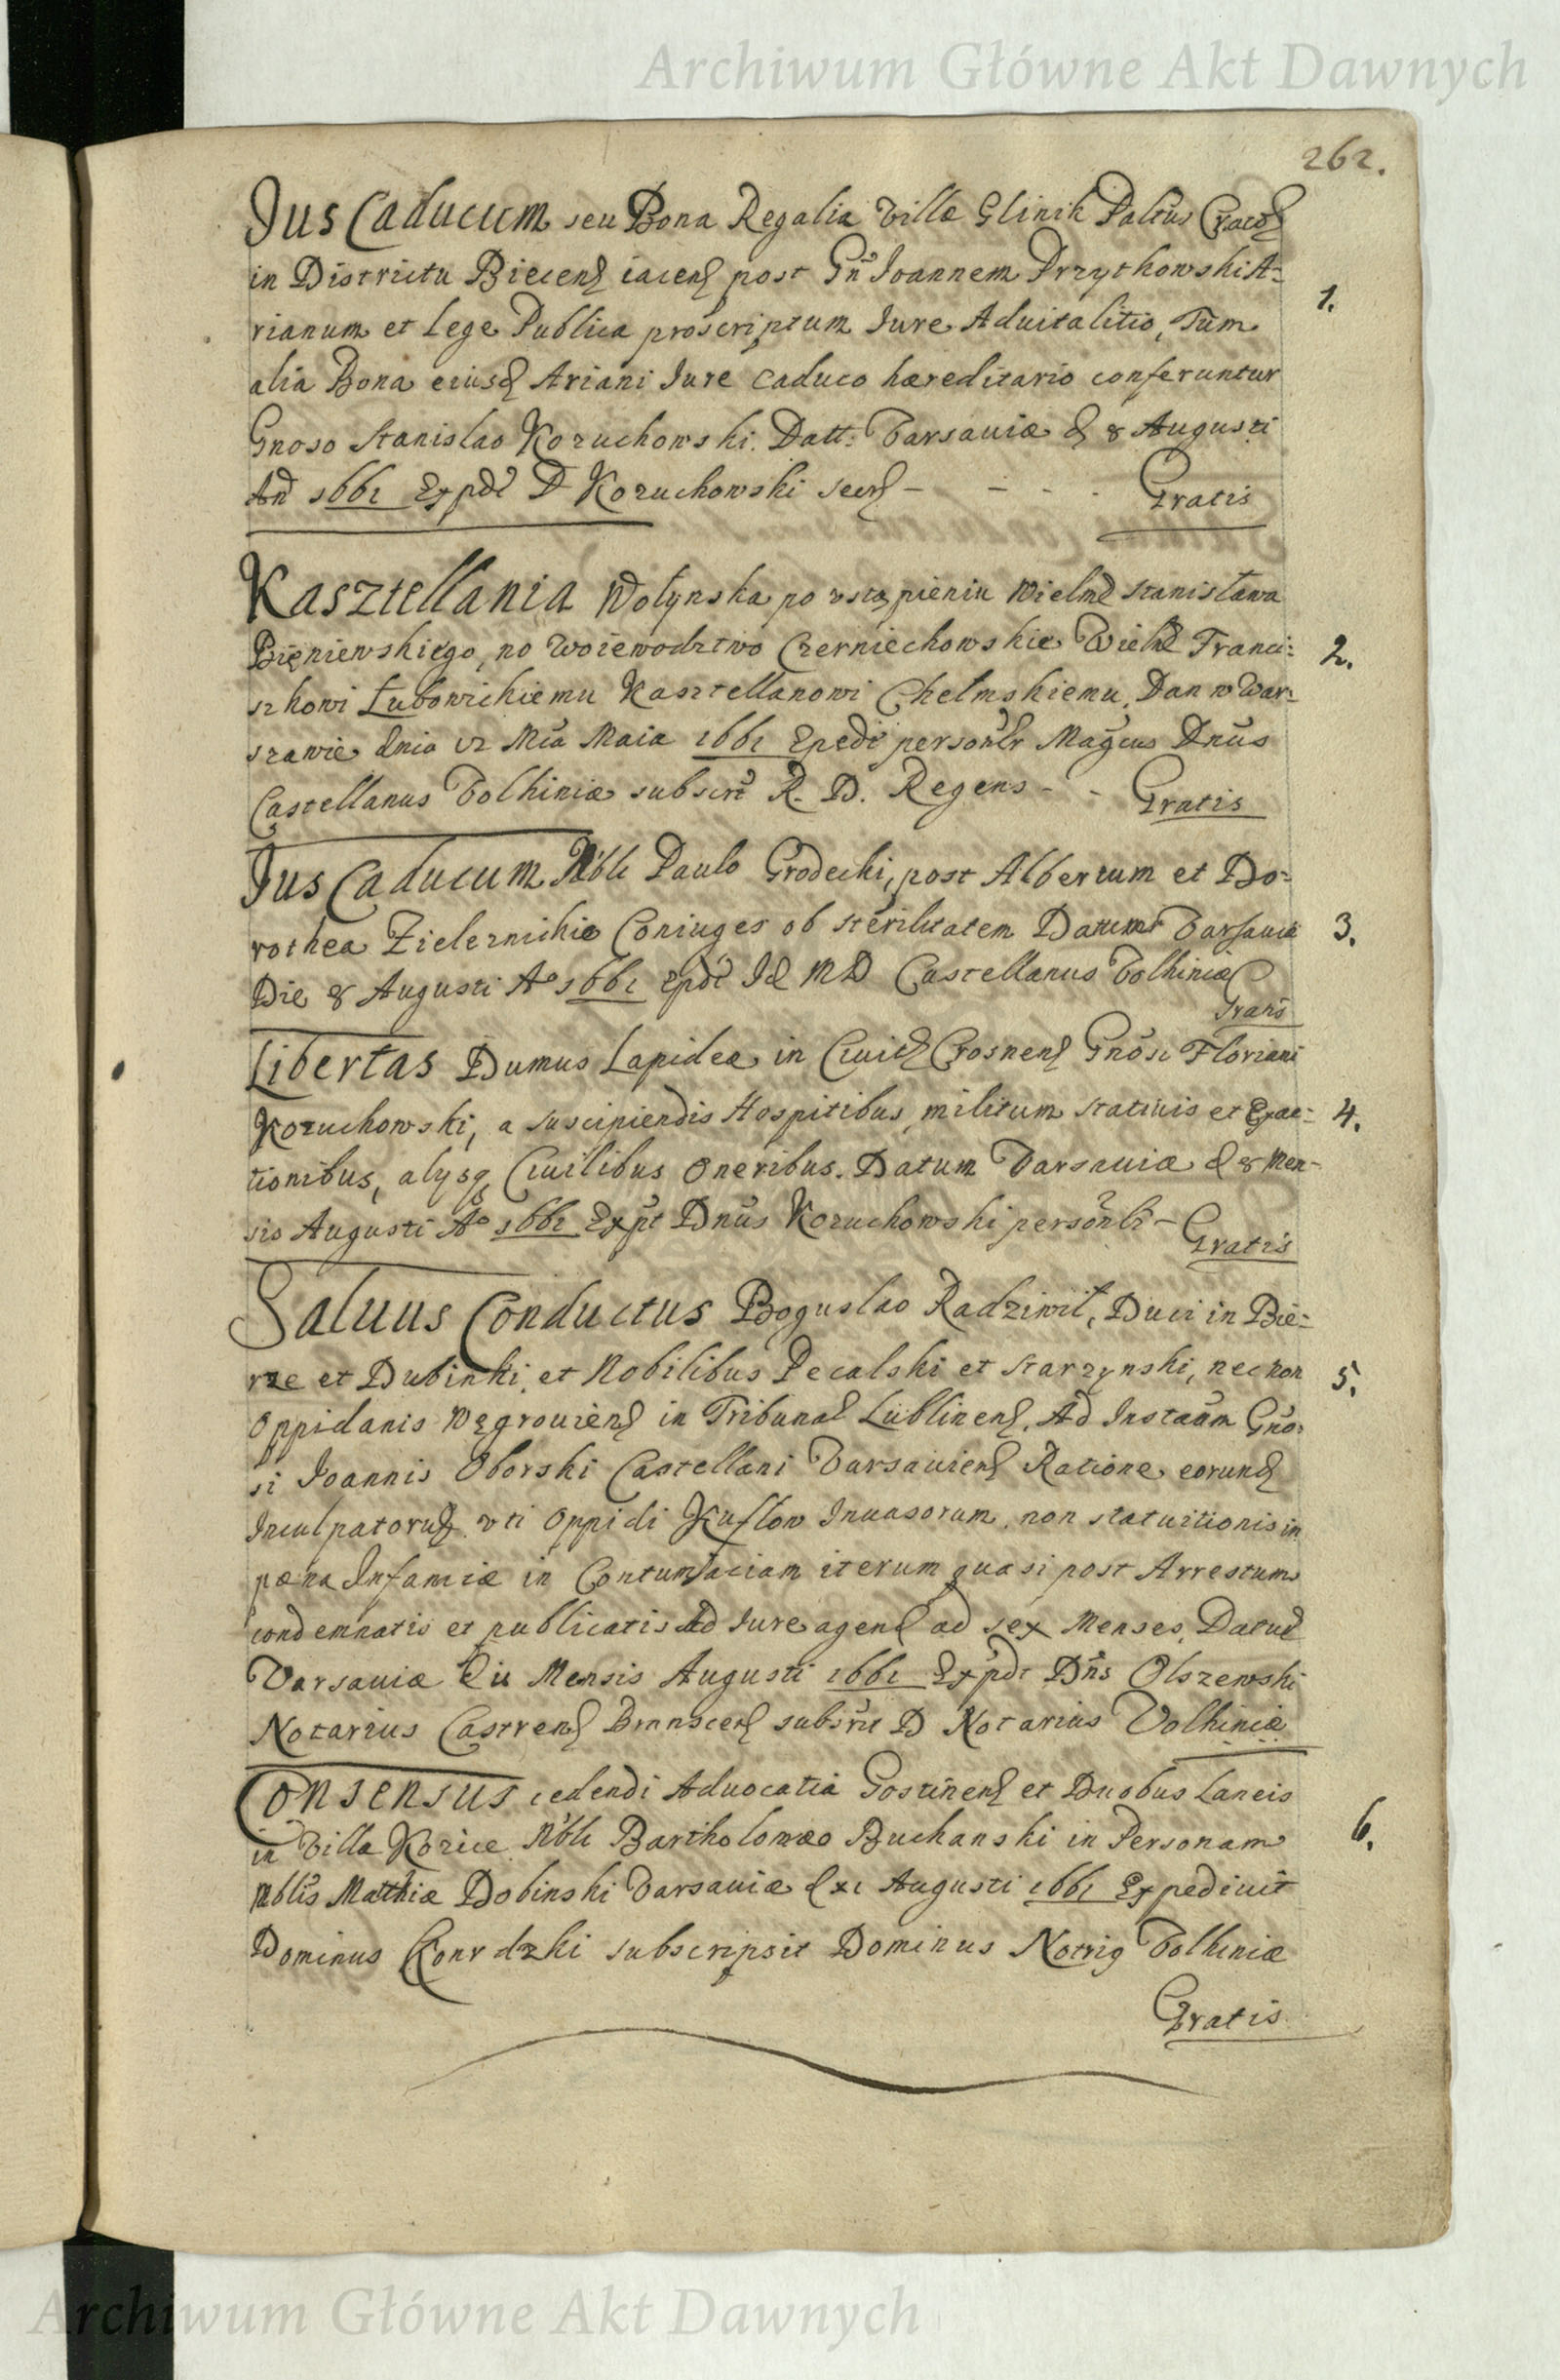 Archiwum Główne Akt Dawnych
262.
Jus Caducum seu Bona Regalia Villæ Glinik Palťus Craco
in Districtu Biecens iacens post Gñ Joannem Przythowski A=
rianum et Lege Publica proscriptum Jure Aduitalitio, Tum
1.
alia Bona eiusd Ariani Jure caduco hæreditario conferuntur
Gnoso Stanislao Kozuchowski. Datt: Varsauiæ d 8 Augusti
An 1661 Expdt D Kozuchowski Secr - - - - Gratis
Kasztellania Wołynska po vstąpieniu Wielm Stanisława
Bieniewskiego, no Woiewodztwo Czerniechowskie Wielm Franci=
2.
szkowi Lubowickiemu Kasztellanowi Chełmskiemu, Dan w War=
szawie dnia 12 Mca Maia 1661 Epedit personlr Magcus Dnus
Castellanus Volhiniæ subscrt R. D. Regens - - Gratis
Jus Caducum Nbli Paulo Grodecki, post Albertum et Do=
rothea Coniuges ob sterilitatem Datum Varsauiæ
3.
Die 8 Augusti Aº 1661 Epdt Id M D Castellanus Volhiniæ
Gratis
Libertas Domus Lapideæ in Ciuit Crosnens Gnosi Floriani
Kozuchowski, a suscipiendis Hospitibus, militum statiuis et Exac=
4.
tionibus, alysq Ciuilibus Oneribus. Datum Varsauiæ d 8 Men-
sis Augusti Aº 1661 Expt Dnus Kozuchowski personlr - Gratis
Saluus Conductus Boguslao Radziwił, Duci in Bie=
rze et Dubinki, et Nobilibus Pecalski et Starzynski, nec non
5.
Oppidanis Węgrouiens in Tribunal Lublinens, Ad Instaum Gno=
si Joannis Oborski Castellani Varsauiens Ratione eorund
Inculpatorum vti Oppidi Kuflow Inuasorum, non statuitionis in
pæna Infamiæ in Contumaciam iterum quasi post Arrestum
condemnatis et publicatis Ad Jure agend ad sex Menses, Datum
Varsauiæ Mensis Augusti 1661 Expdt Dns Olszewski
Notarius Castrens subscrit D Notarius Volhiniæ
Consensus cedendi Aduocatia Gostinens et Duobus Laneis
in Villa Kozice Nbli Bartholomæo Buchanski in Personam
6.
Nblis Matthiæ Dobinski Varsauiæ d xi Augusti 1661 Expediuit
Dominus subscripsit Dominus Notrig Volhiniæ
Gratis
Archiwum Główne Akt Dawnych